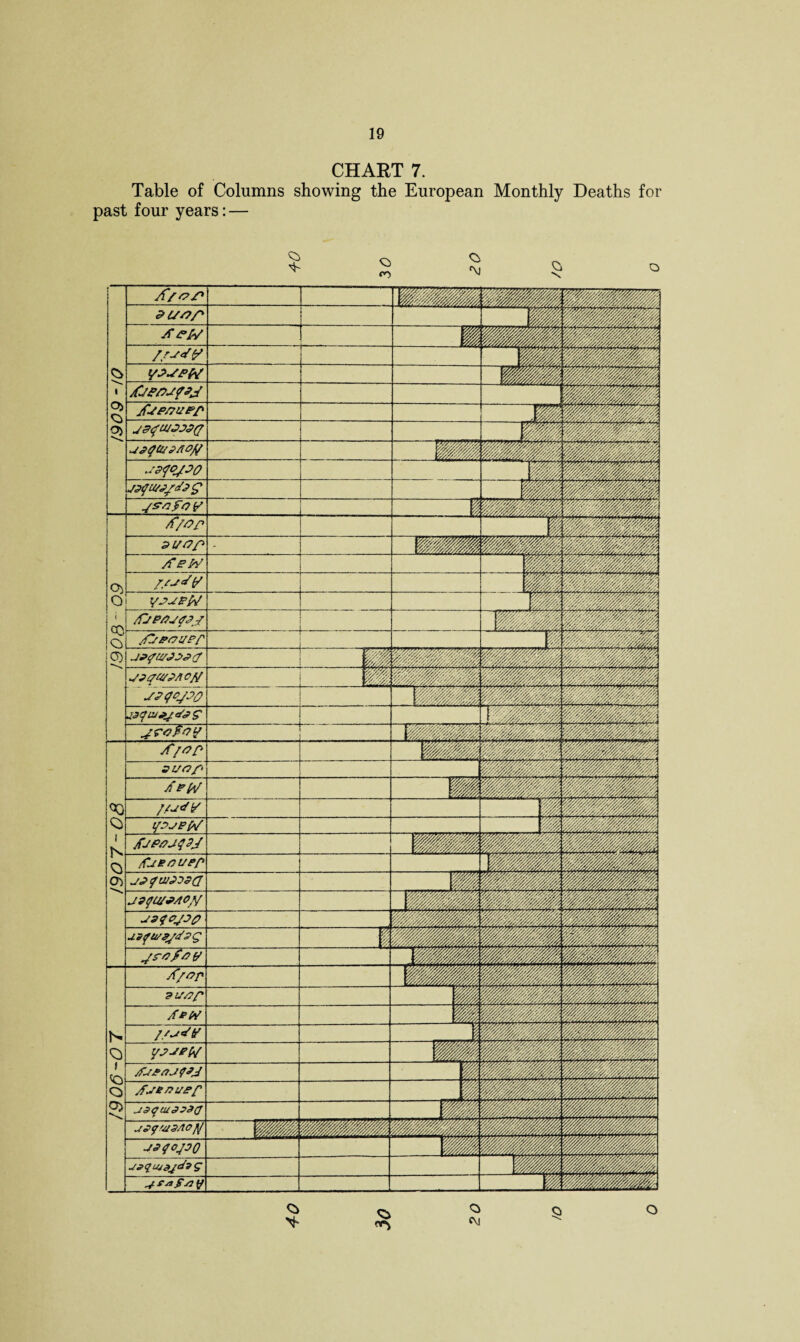 19
CHART 7.
Table of Columns showing the European Monthly Deaths for
past four years:—
40 30 20 10 0
1906-07
August
September
October
November
December
January
February
March
April
May
June
July
1907-08
August
September
October
November
December
January
February
March
April
May
June
July
1908-09
August
September
October
November
December
January
February
March
April
May
June
July
1909-10
August
September
October
November
December
January
February
March
April
May
June
July
40 30 20 10 0